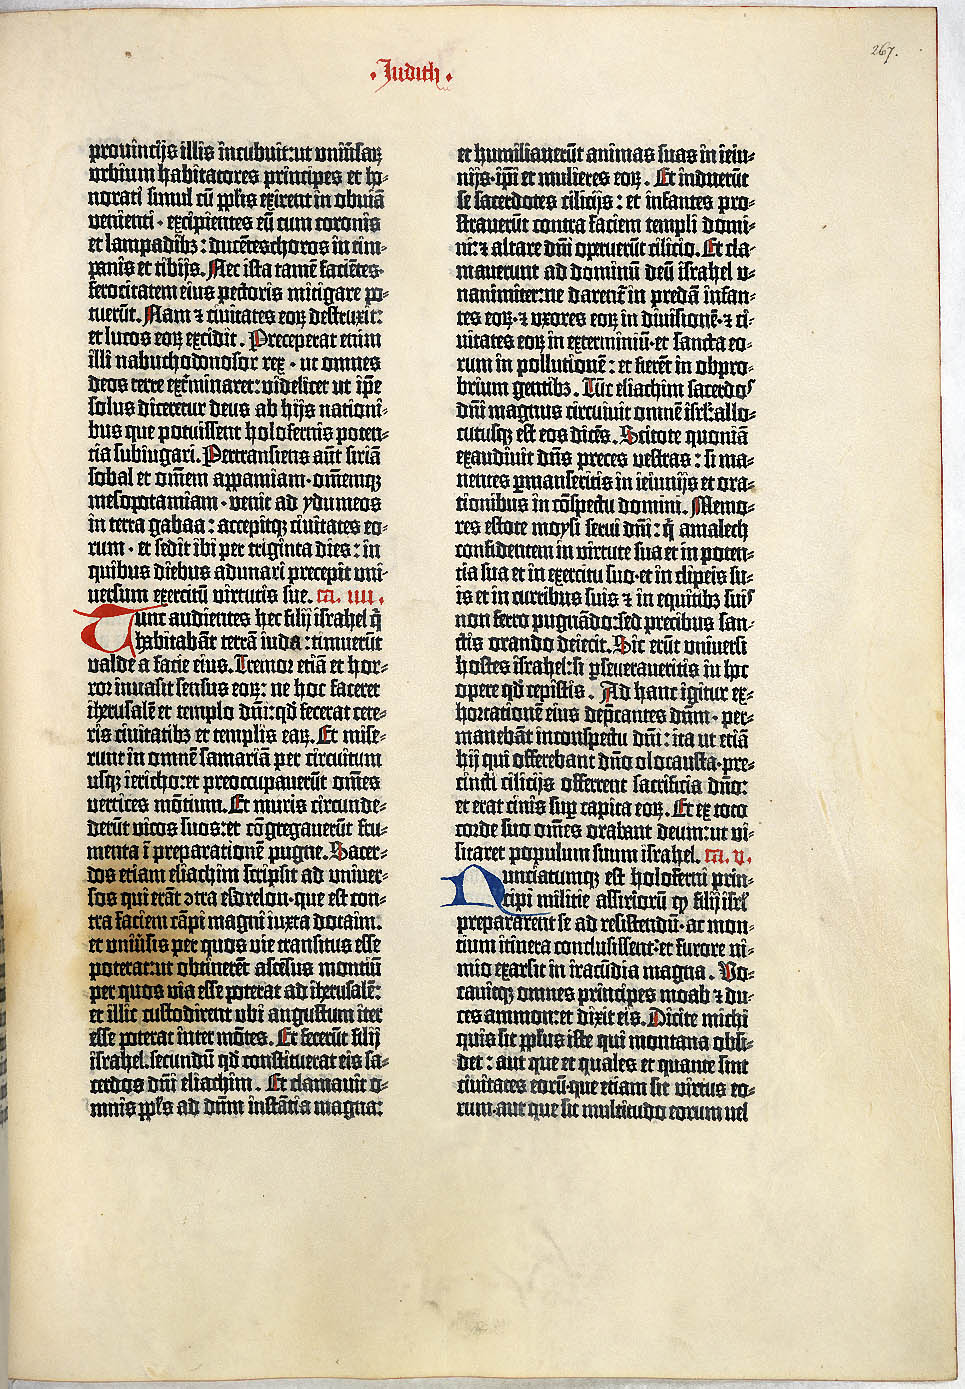 267.
·Judith·
prouincijs illis incubuit: ut vniūsaꝝ
vrbium habitatores principes et ho-
norati simul cū pp̄lis exirent in obuiā
venienti · excipientes eū cum coronis
et lampadibꝫ: ducētes choros in tim-
panis et tibijs. Nec ista tamē faciētes·
ferocitatem eius pectoris mitigare po-
tuerūt. Nam ⁊ ciuitates eoꝝ destruxit:
et lucos eoꝝ excidit. Preceperat enim
illi nabuchodonosor rex · ut omnes
deos terre ext̄minaret: videlicet ut ip̄e
solus diceretur deus ab hijs nationi-
bus que potuissent holofernis poten-
tia subiugari. Pertransiens aūt siriā
sobal et om̄em appamiam · om̄emqꝫ
mesopotamiam · venit ad ydumeos
in terra gabaa: accepitqꝫ ciuitates eo-
rum · et sedit ibi per triginta dies: in
quibus diebus adunari precepit uni-
uersum exercitū virtutis sue. ca. iiii.
Tunc audientes hec filij israhel q̄
habitabāt terrā iuda: timuerūt
valde a facie eius. Tremor etiā et hor-
ror inuasit sensus eoꝝ: ne hoc faceret
iherusalē et templo dn̄i: qd̄ fecerat cete-
ris ciuitatibꝫ et templis eaꝝ. Et mise-
runt in omnē samariā per circuitum
usqꝫ iericho: et preoccupauerūt om̄es
vertices mōtium. Et muris circunde-
derūt vicos suos: et cōgregauerūt fru-
menta ī preparationē pugne. Sacer-
dos etiam eliachim scripsit ad vniuer-
sos qui erāt ↄtra esdrelon · que est con-
tra faciem cāpi magni iuxta dotaim:
et vniūsis per quos vie transitus esse
poterat: ut obtinerēt ascēsus montiū
per quos via esse poterat ad iherusalē:
et illic custodirent vbi angustum iter
esse poterat inter mōtes. Et fecerūt filij
israhel secundū qd̄ constituerat eis sa-
cerdos dn̄i eliachim. Et clamauit o-
mnis pp̄ls ad dn̄m instātia magna:
et humiliauerūt animas suas in ieiu-
nijs · ip̄i et mulieres eoꝝ. Et induerūt
se sacerdotes cilicijs: et infantes pro-
strauerūt contra faciem templi domi-
ni: ⁊ altare dn̄i operuerūt cilicio. Et cla-
mauerunt ad dominū deū israhel v-
nanimiter: ne darent̄ in predā infan-
tes eoꝝ · ⁊ vxores eoꝝ in diuisionē · ⁊ ci-
uitates eoꝝ in exterminiū · et sancta eo-
rum in pollutionē: et fierēt in obpro-
brium gentibꝫ. Tūc eliachim sacerdos
dn̄i magnus circuiuit omnē isrl̄: allo-
cutusqꝫ est eos dicēs. Scitote quoniā
exaudiuit dn̄s preces vestras: si ma-
nentes ꝑmanseritis in ieiunijs et ora-
tionibus in cōspectu domini. Memo-
res estote moysi serui dn̄i: q̄ amalech
confidentem in virtute sua et in poten-
tia sua et in exercitu suo · et in clipeis su-
is et in curribus suis ⁊ in equitibꝫ suis
non ferro pugnādo: sed precibus san-
ctis orando deiecit. Sic erūt vniuersi
hostes israhel: si ꝑseueraueritis in hoc
opere qd̄ cepistis. Ad hanc igitur ex-
hortationē eius dep̄cantes dn̄m · per-
manebāt in conspectu dn̄i: ita ut etiā
hij qui offerebant dn̄o olocausta · pre-
cincti cilicijs offerrent sacrificia dn̄o:
et erat cinis sup̄ capita eoꝝ. Et ex toto
corde suo om̄es orabant deum: ut vi-
sitaret populum suum israhel. ca. v.
Nunciatumqꝫ est holoferni prin-
cipi milicie assirioꝝū ꝙ filij isrl̄
prepararent se ad resistendū · ac mon-
tium itinera conclusissent: et furore ni-
mio exarsit in iracūdia magna. Vo-
cauitqꝫ omnes principes moab ⁊ du-
ces ammon: et dixit eis. Dicite michi
quis sit pp̄lus iste qui montana obsi-
det: aut que et quales et quante sint
ciuitates eorū · que etiam sit virtus eo-
rum · aut que sit multitudo eorum uel